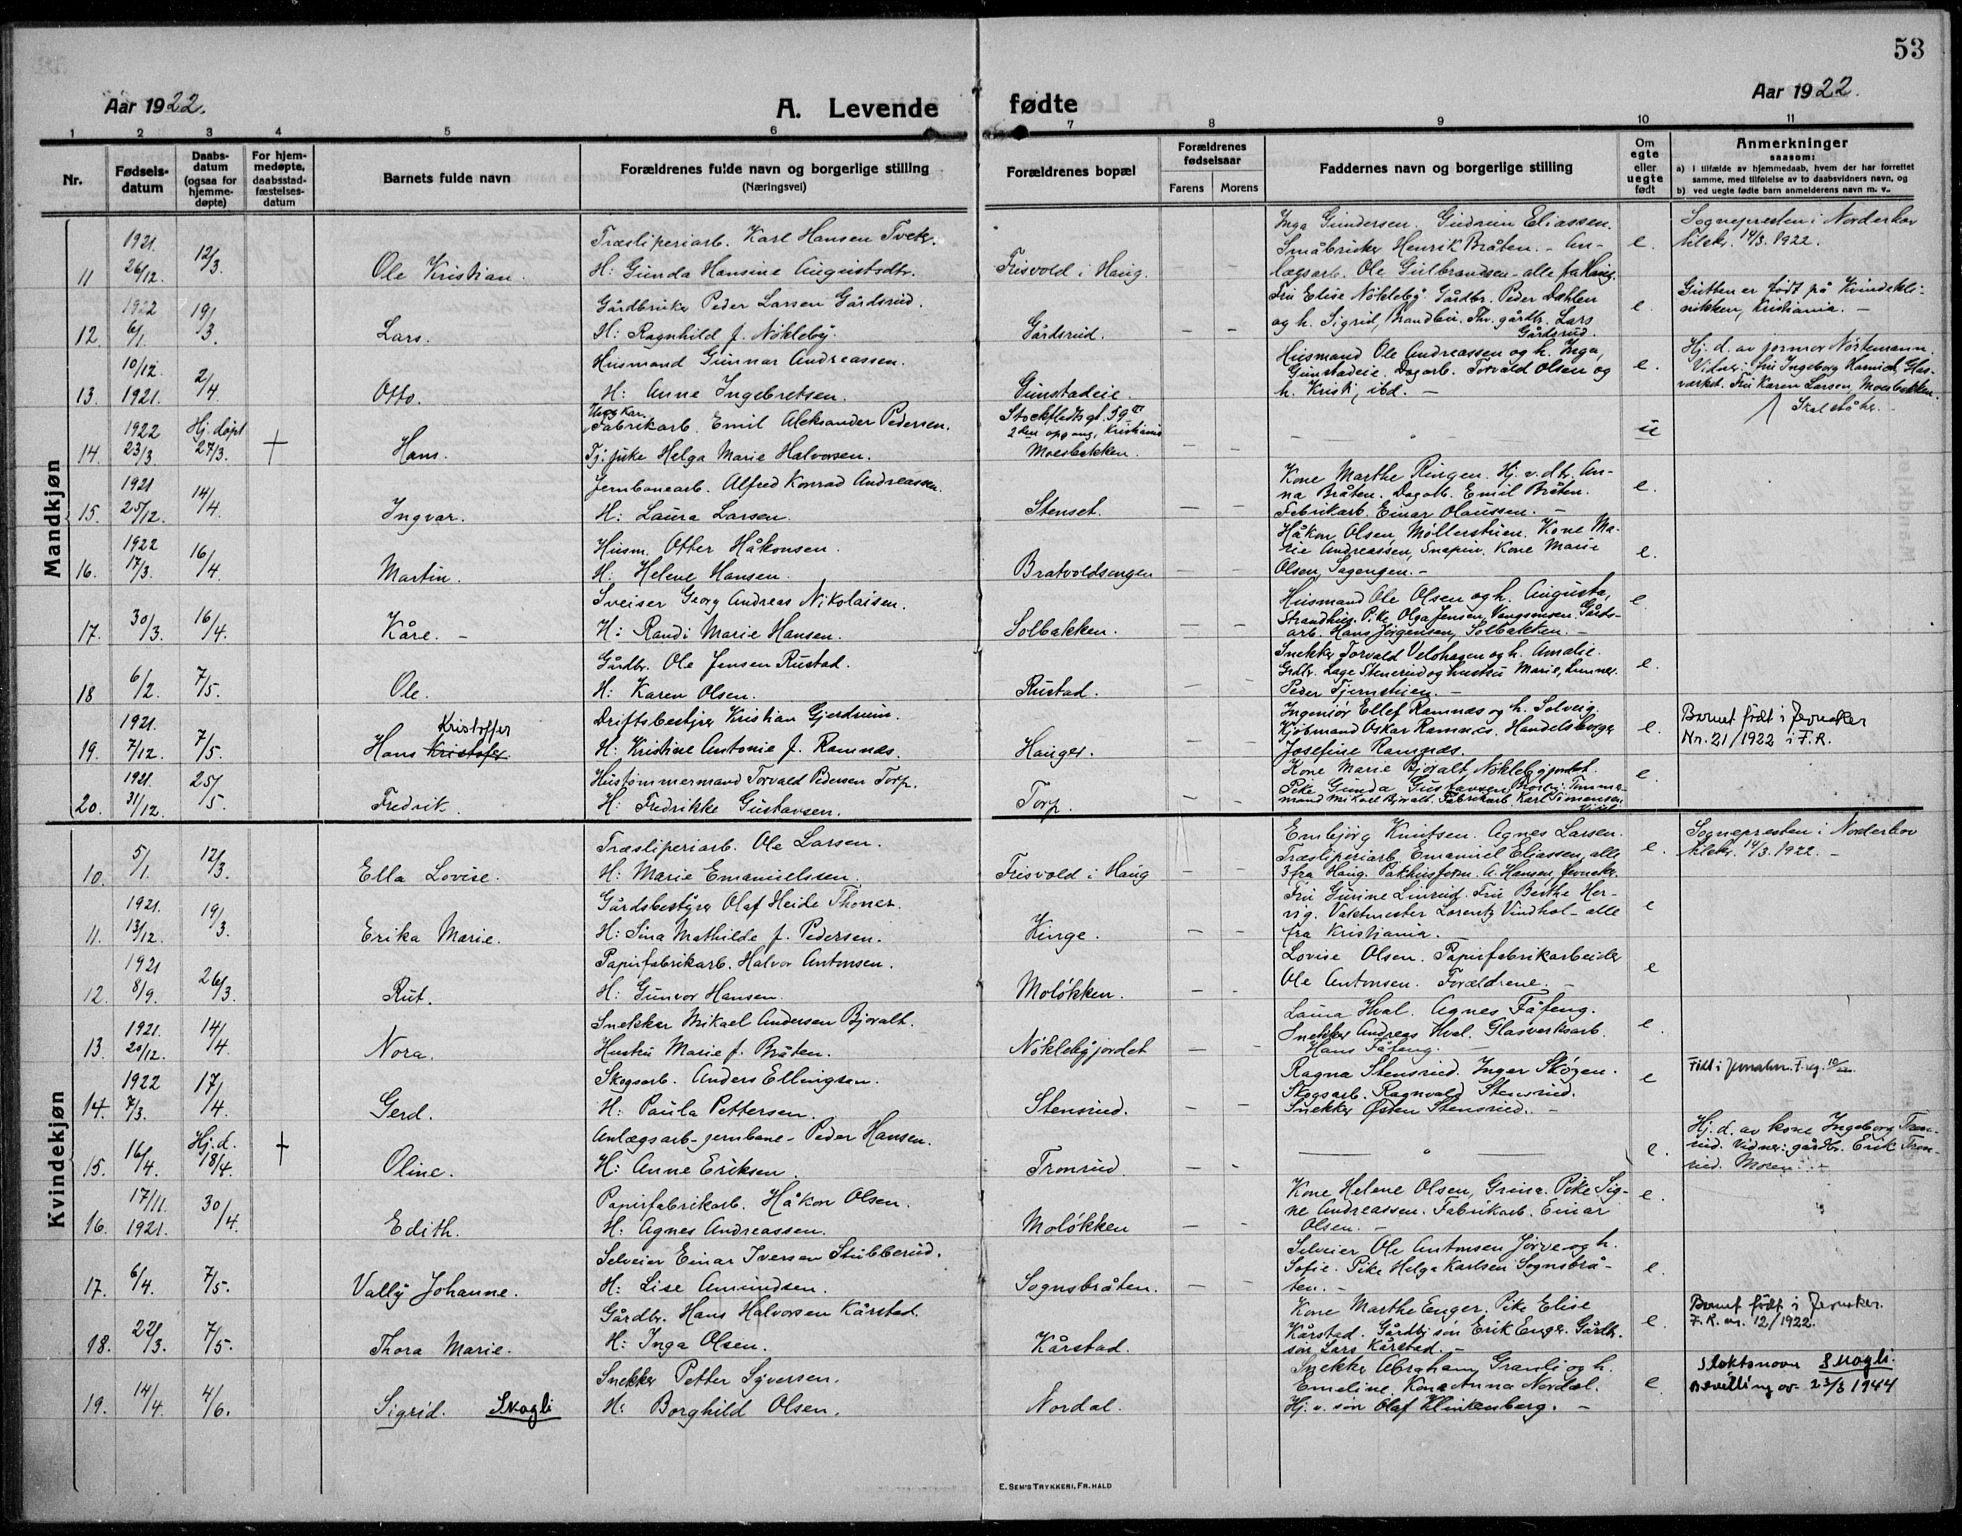 53
Aar 1922.
A. Levende
fødte
Aar 1922.
1 2 3 4 5 6 7 8 9 10 11
Nr.
Fødsels-
datum
Daabs-
datum
(ogsaa for
hjemme-
døpte)
For hjem-
medøpte,
daabsstad-
fæstelses-
datum
Barnets fulde navn
Forældrenes fulde navn og borgerlige stilling
(Næringsvei)
Forældrenes bopæl
Forældrenes
fødselsaar
Farens Morens
Faddernes navn og borgerlige stilling
Om
egte
eller
uegte
født
Anmerkninger
saasom:
a) i tilfælde av hjemmedaab, hvem der har forrettet
samme, med tilføielse av to daabsvidners navn, og
b) ved uegte fødte barn anmelderens navn m. v.
Mandkjøn
11 1921. 26/12. 12/3. Ole Kristian.
Træsliperiarb. Karl Hansen Tveter.
H: Gunda Hansine Augustsdtr.
Frisvold i Haug. - -
Inga Gundersen. Gudrun Eliassen.
Småbruker Henrik Bråten. - An-
lægsarb. Ole Gulbrandsen - alle fa Haug.
e.
Sognepresten i Norderhov
tilskr. 14/3. 1922.
12. 1922 6/1. 19/3. Lars.
Gårdbruker Peder Larsen Gårdsrud.
H: Ragnhild f. Nökleby.
Gårdsrud. - -
Fru Elise Nökleby. Gårdbr. Peder Dæhlen
og h. Sigrid, Brandbu. Fhv. gårdbr. Lars
Gårdsrud.
e.
Gutten er født på Kvindekli-
nikken, Kristiania. -
13. 10/12. 1921. 2/4. Otto.
Husmand Gunnar Andreassen.
H: Anne Ingebretsen.
Gunstadeie. - -
Husmand Ole Andreassen og h. Inga,
Gunstadeie. Dagarb. Torvald Olsen og
h. Kristi, ibd. -
e.
Hj. d. av jormor Nortemann.
Vidner: fru Ingeborg Glas-
værket. Fru Karen Larsen, Moesbakken.
Skal stå her.
14. 1922 23/3. Hj. døpt 27/3. + Hans.
Ung Kar.
Fabrikarb. Emil Aleksander Pedersen.
Tj. pike Helga Marie Halvorsen.
Stockfleths gt. 59 III
2den opgang, Kristiania
Moesbakken. -
u
15. 1921 25/12. 14/4. Ingvar.
Jernbanearb. Alfred Konrad Andreassen.
H: Laura Larsen.
Stenset. - -
Kone Marthe Ringen. Hj. v. dtr. An-
na Bråten. Dagarb. Emil Bråten.
Fabrikarb. Einar Olaussen. -
e.
16. 1922 17/3. 16/4. Martin.
Husm. Otter Håkonsen.
H. Helene Hansen.
Bratvoldsengen - -
Håkon Olsen, Møllerstuen. Kone Ma-
rie Andreassen, Kone Marie
Olsen, Sagengen. -
e.
17. 30/3. 16/4. Kåre. -
Sveiser Georg Andreas Nikolaisen.
H: Randi Marie Hansen.
Solbakken. - -
Husmand Ole Olsen og h. Augusta,
Pike Olga Jensen, Gårds-
arb. Hans Jørgensen, Solbakken. -
e.
18 6/2. 7/5. Ole.
Gårdbr. Ole Jensen Rustad.
H: Karen Olsen.
Rustad. - -
Snekker Torvald Velohagen og h. Amalie.
Grdbr. Lage Stenerud og hustru Marie, Lunner.
Peder Tjernstuen. -
e.
19. 1921. 7/12. 7/5. Kristoffer
Hans Kristofer.
Driftsbestyrer Kristian Gjerdrum.
H: Kristine Antonie f. Ramnæs.
Hanger. - -
Ingeniör Ellef Ramnæs og h. Solveig.
Kjöbmand Oskar Ramnæs. Handelsborger
Josefine Ramnæs.
e.
Barnet födt i Jevnaker
Nr. 21/1922 i F.R.
20. 1921. 31/12. 25/5. Fredrik.
Hustömmermand Torvald Pedersen Torp.
H: Fredrikke Gustavsen.
Torp. - -
Kone Marie Bjoralt, Nöklebyjordet.
Pike Gunda Gustavsen Tömmer-
mand Mikael Bjoralt. Fabrikarb. Karl Simensen
e.
Kvindekjøn
10. 5/1. 12/3. Ella Lovise.
Træsliperiarb. Ole Larsen.
H: Marie Emanuelssen.
Frisvold i Haug - -
Embjörg Knutsen. Agnes Larsen.
Træsliperiarb. Emanuel Eliassen, alle
3 fra Haug. Pakhusform. A. Hansen, Jevnaker.
e.
Sognepresten i Norderhov
tilskr. 14/3. 1922. -
11. 1921. 13/12. 19/3. Erika Marie.
Gårdsbestyrer Olaf Heide Thoner.
H: Sina Mathilde f. Pedersen.
Kinge. - -
Fru Gurine Linrud. Fru Berthe Her-
vig. Vaktmester Lorentz Vindhol - alle
fra Kristiania. -
e
12. 1921 8/9. 26/3. Rut.
Papirfabrikarb. Halvor Antonsen.
H: Gunvor Hansen.
Moløkken. - -
Lovise Olsen. Papirfabrikarbeider
Ole Antonsen. Forældrene. -
e
13. 1921. 20/12. 14/4. Nora.
Snekker Mikael Andersen Bjoralt.
Hustru Marie f. Bråten.
Nöklebyjordet - -
Laura Hval. Agnes Fåfeng.
Snekker Andreas Hval. Glasverksarb.
Hans Fåfeng. -
e.
14. 1922 7/3. 17/4. Gerd.
Skogsarb. Anders Ellingsen.
H: Paula Pettersen.
Stensrud. - -
Ragna Stensrud. Inger Skogen.
Skogsarb. Ragnvald Stensrud.
Snekker Østen Stensrud. -
e
15. 16/4. Hj. d. 18/4. + Oline.
Anlægsarb - jernbane - Peder Hansen.
H: Anne Eriksen.
Tronrud.
e.
Hj. d. av kone Ingeborg Tron-
rud. Vidner: gårdbr. Erik Tron-
rud. Moren. -
16. 17/11. 1921. 30/4. Edith.
Papirfabrikarb. Håkon Olsen.
H: Agnes Andreassen.
Moløkken - -
Kone Helene Olsen, Grina. Pike Sig-
ne Andreassen. Fabrikarb. Einar
Olsen. -
e.
17. 6/4. 7/5. Vally Johanne.
Selveier Einar Iversen Stubberud.
H: Lise Amundsen.
Sognsbråten. - -
Selveier Ole Antonsen Jorve og h.
Sofie. Pike Helga Karlsen Sognsbrå-
ten. -
e.
18. 22/3. 7/5. Thora Marie.
Gårdbr. Hans Halvorsen Kårstad.
H: Inga Olsen.
Kårstad. - -
Kone Marthe Enger. Pike Elise
Kårstad. Gårdbr. sön Erik Enger. Gårdbr.
sön Lars Kårstad. -
e.
Barnet født i Jevnaker.
F.R. nr. 12/1922.
19. 14/4. 4/6. Sigrid. Skogli
Snekker Petter Syversen.
H: Borghild Olsen.
Nordal. - -
Snekker Abraham Granli og h.
Emeline. Kone Anna Nordal.
Hj. v. sön Olaf Klinkenberg. -
e.
Slektsnavn Skogli.
Bevilling av 23/3 1944
E. SEM'S TRYKKERI, FR.HALD